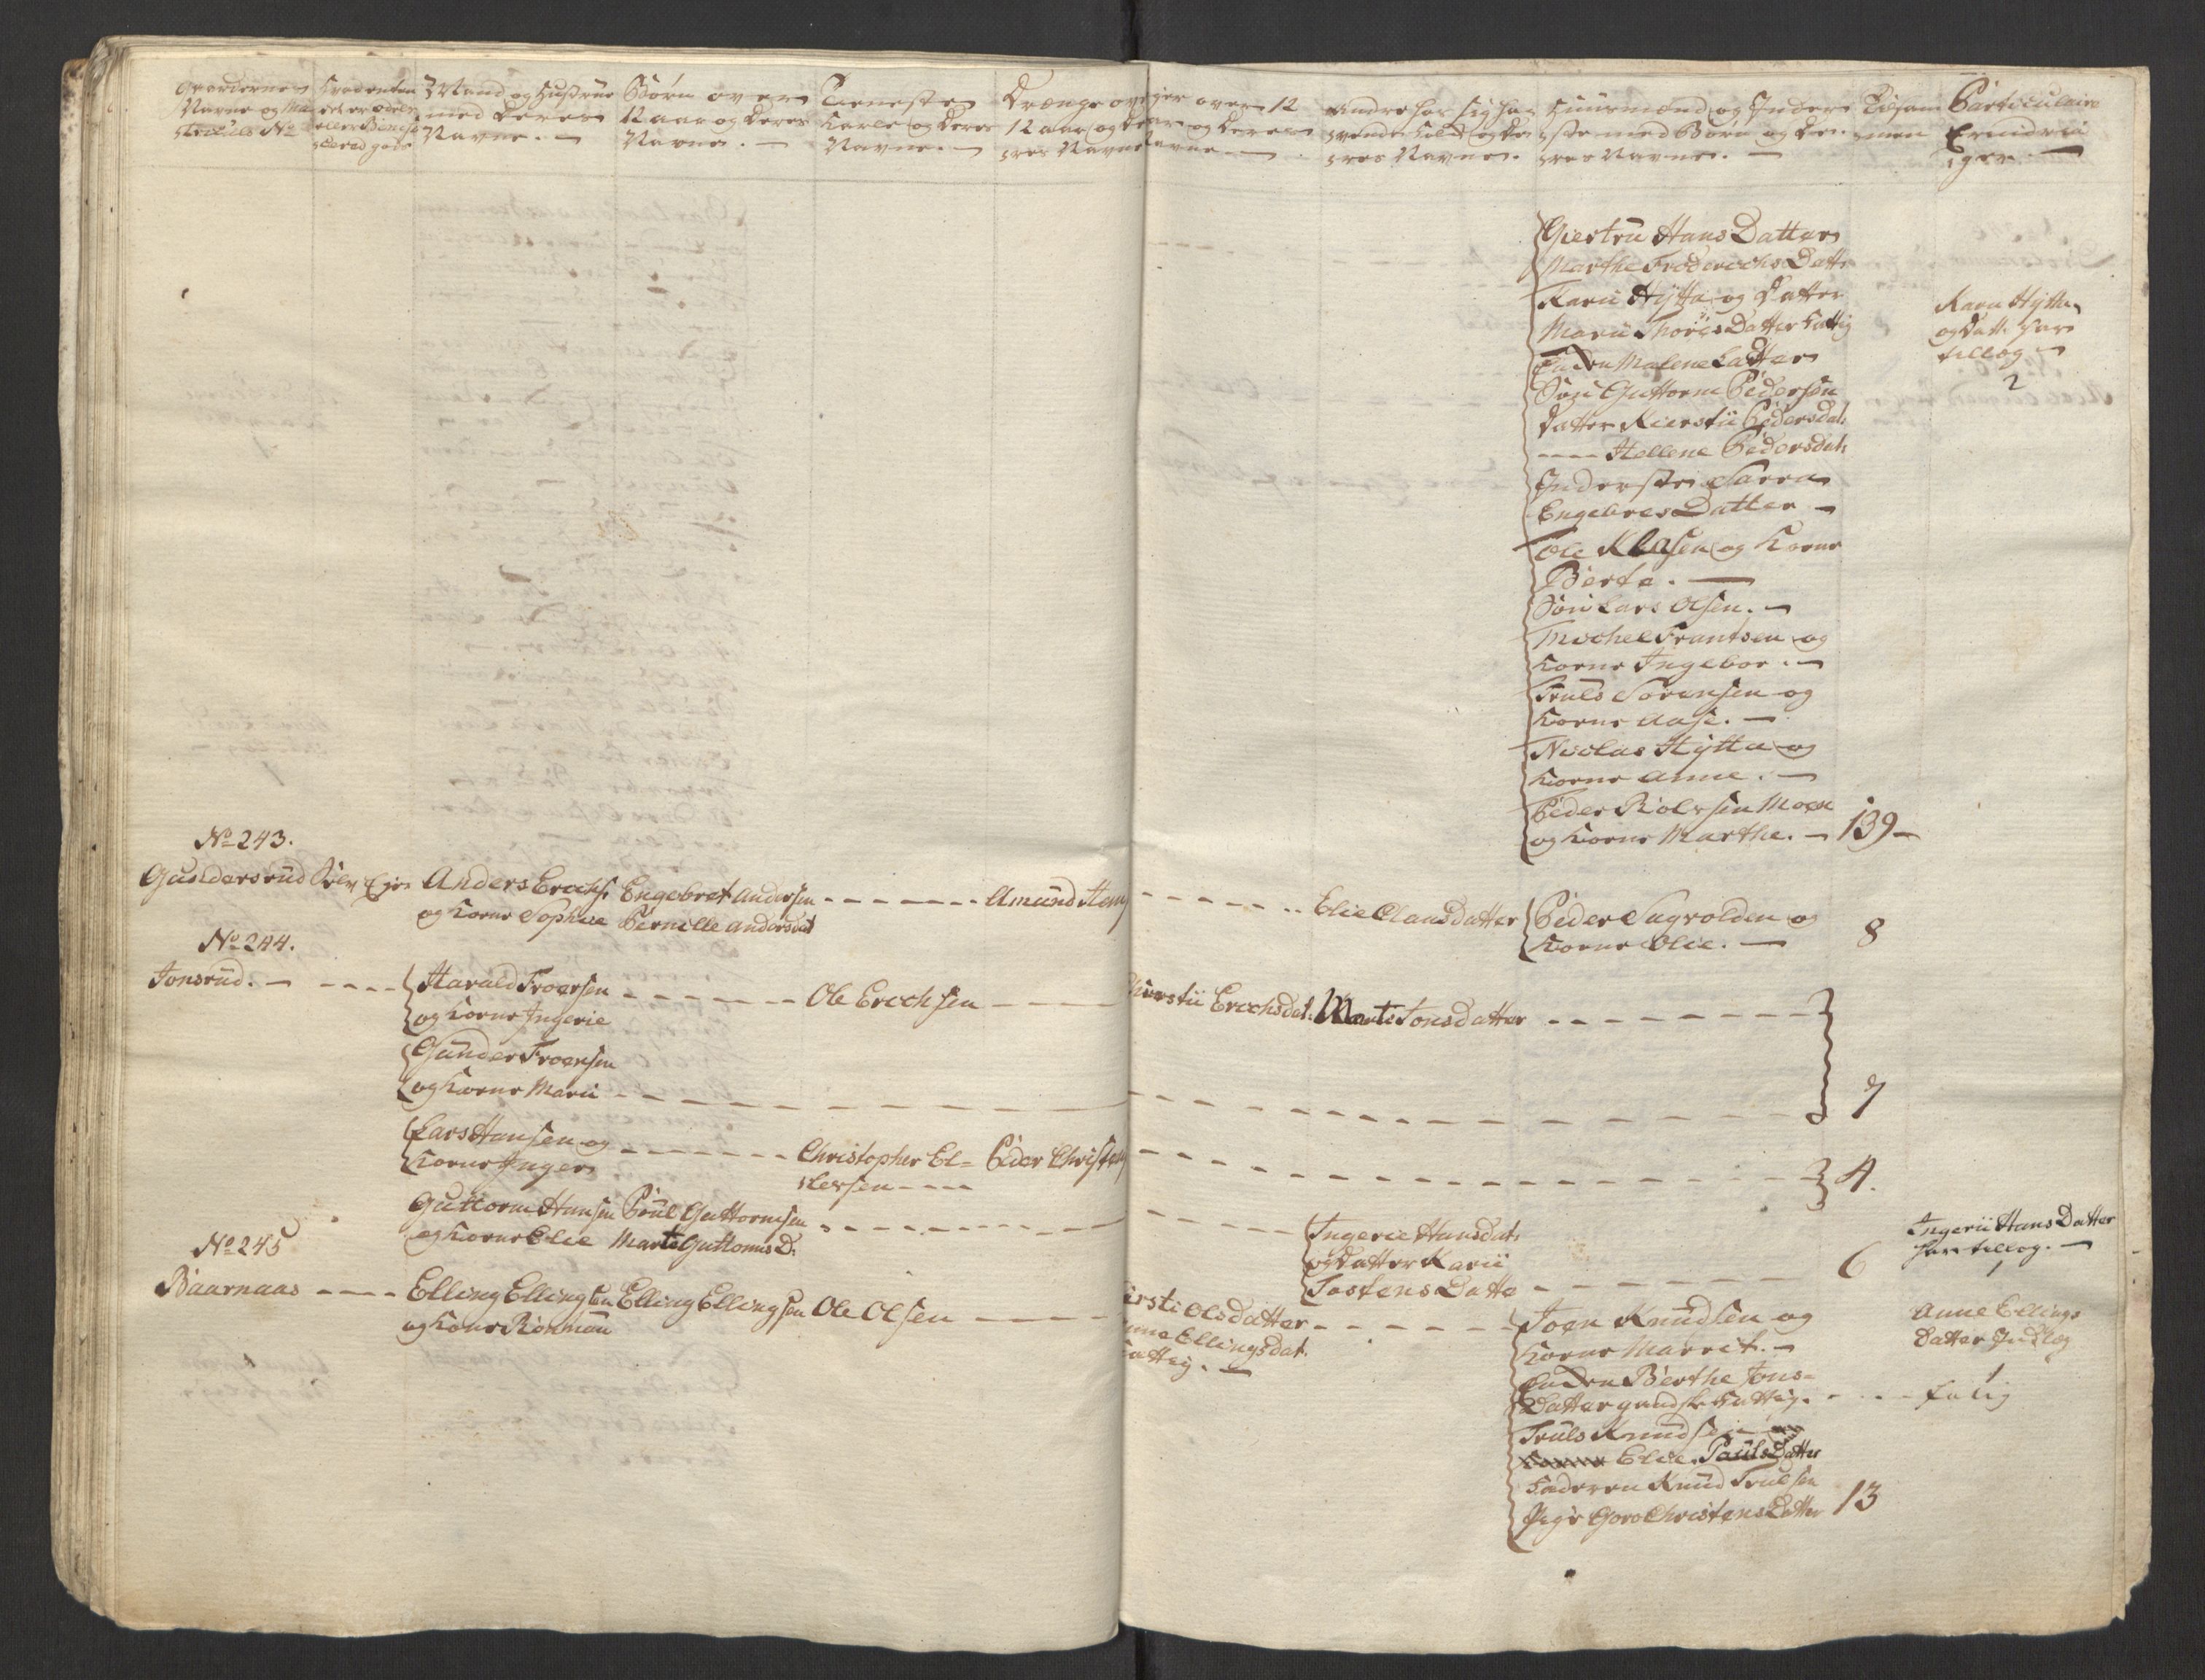 Gaardernes
Navne og Ma
triculs No
Mand og Hustrue
med deres
Navne. —
Børn over
12 aar og deres
Navne. —
Tieneste
Karle og deres
Navne. —
Drænge over
12 aar og de
res Navne
Piger over 12
aar og deres
Navne —
Andre som sig
og de
res Navne.
Huusmænd og Inder
ster med Børn og de
res Navne. —
Tilsam
men
Particulaire
Erindrin
ger. —
Giertru Hans Datter
Marthe Frederichs Datt
Karii Hytta og Datter
Marii Thores Datter fattig
Enken Malene Latter
Søn Guttorm Pedersen
Datter Kierstii Pedersdat.
---- Hellene Pedersdat.
Inderste Saren
Engebres Datter —
Ole Klasen og Kone
Berte. —
Søn Lars Olsen. —
Michel Frantsen og
Kone Ingebor. —
Truls Sørensen og
Kone Aase. —
Nicolas Hytta og
Kone Anne. —
Peder Rolfsen Moen
og Kone Marthe. — 139 —
Karii Hytta
og Datt. har
tillæg —
2
No 243.
Gundersrud Selv Ejer
Anders Erichs.
og Kone Sophie
Engebret Andersen
Pernille Andersdat
Amund Hans
Elie Clausdatter
Peder Sagvolden og
Kone Olie. — 8
No 244.
Jonsrud. —
Harald Froersen
og Kone Ingerie
Ole Erichsen
Chirstii Erichsdat.
Marte Jonsdatter
Gunder Froersen
og Kone Marii
7
Lars Hansen og
Kone Inger
Christopher El=
lersen
Peder Christens
4.
Guttorm Hansen
og Kone Elie
Poul Guttormsen
Marte Guttorms D.
Ingerie Hansdat.
og Datter Karii
Tostens Datte
6
Ingerii Hans Datter
har tillæg. —
1
No 245
Baarnaas
Elling Ellingsen
og Kone Rønnou
Elling Ellingsen
Ole Olsen
Kirsti Olsdatter
Anne Ellingsdat.
fattig. —
Joen Knudsen og
Kone Marrit. —
Enken Berthe Jons=
Datter gandske fattig.
Truls Knudsen
Elie Pauls Datter
Faderen Knud Trulsen
Pige Goro Christens Datter 13
Anne Ellings
Datter Indlæg
1